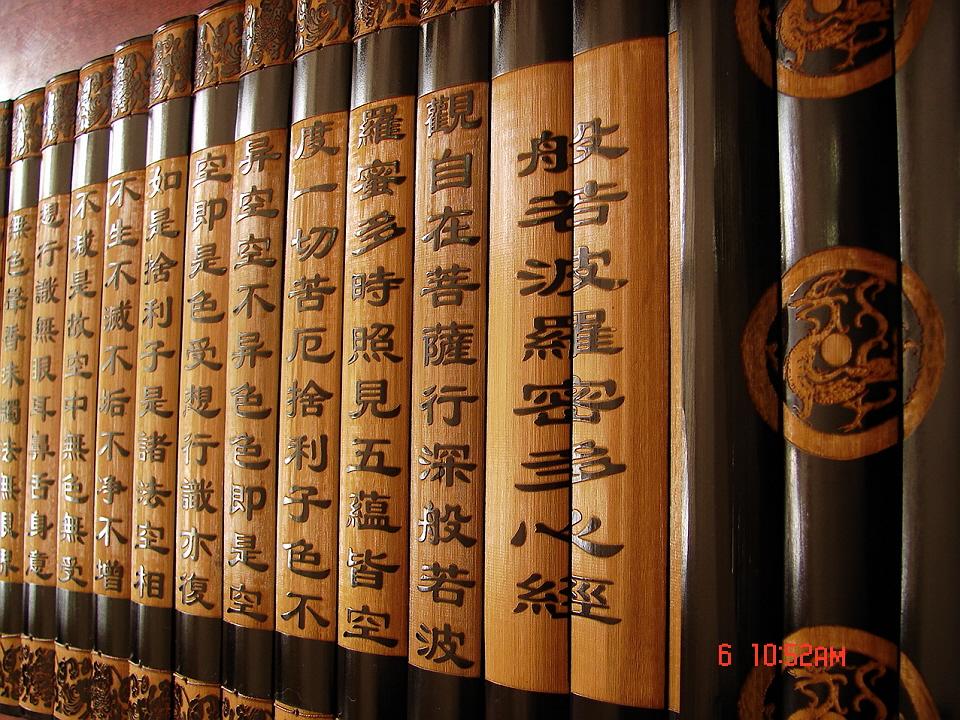 般若波羅密多心經
觀自在菩薩行深般若波
羅蜜多時照見五蘊皆空
度一切苦厄捨利子色不
异空空不异色色即是空
空即是色受想行識亦復
如是捨利子是諸法空相
不生不滅不垢不净不增
不减是故空中無色無受
想行識無眼耳鼻舌身意
無色聲香味觸法無眼界
6 10:52AM